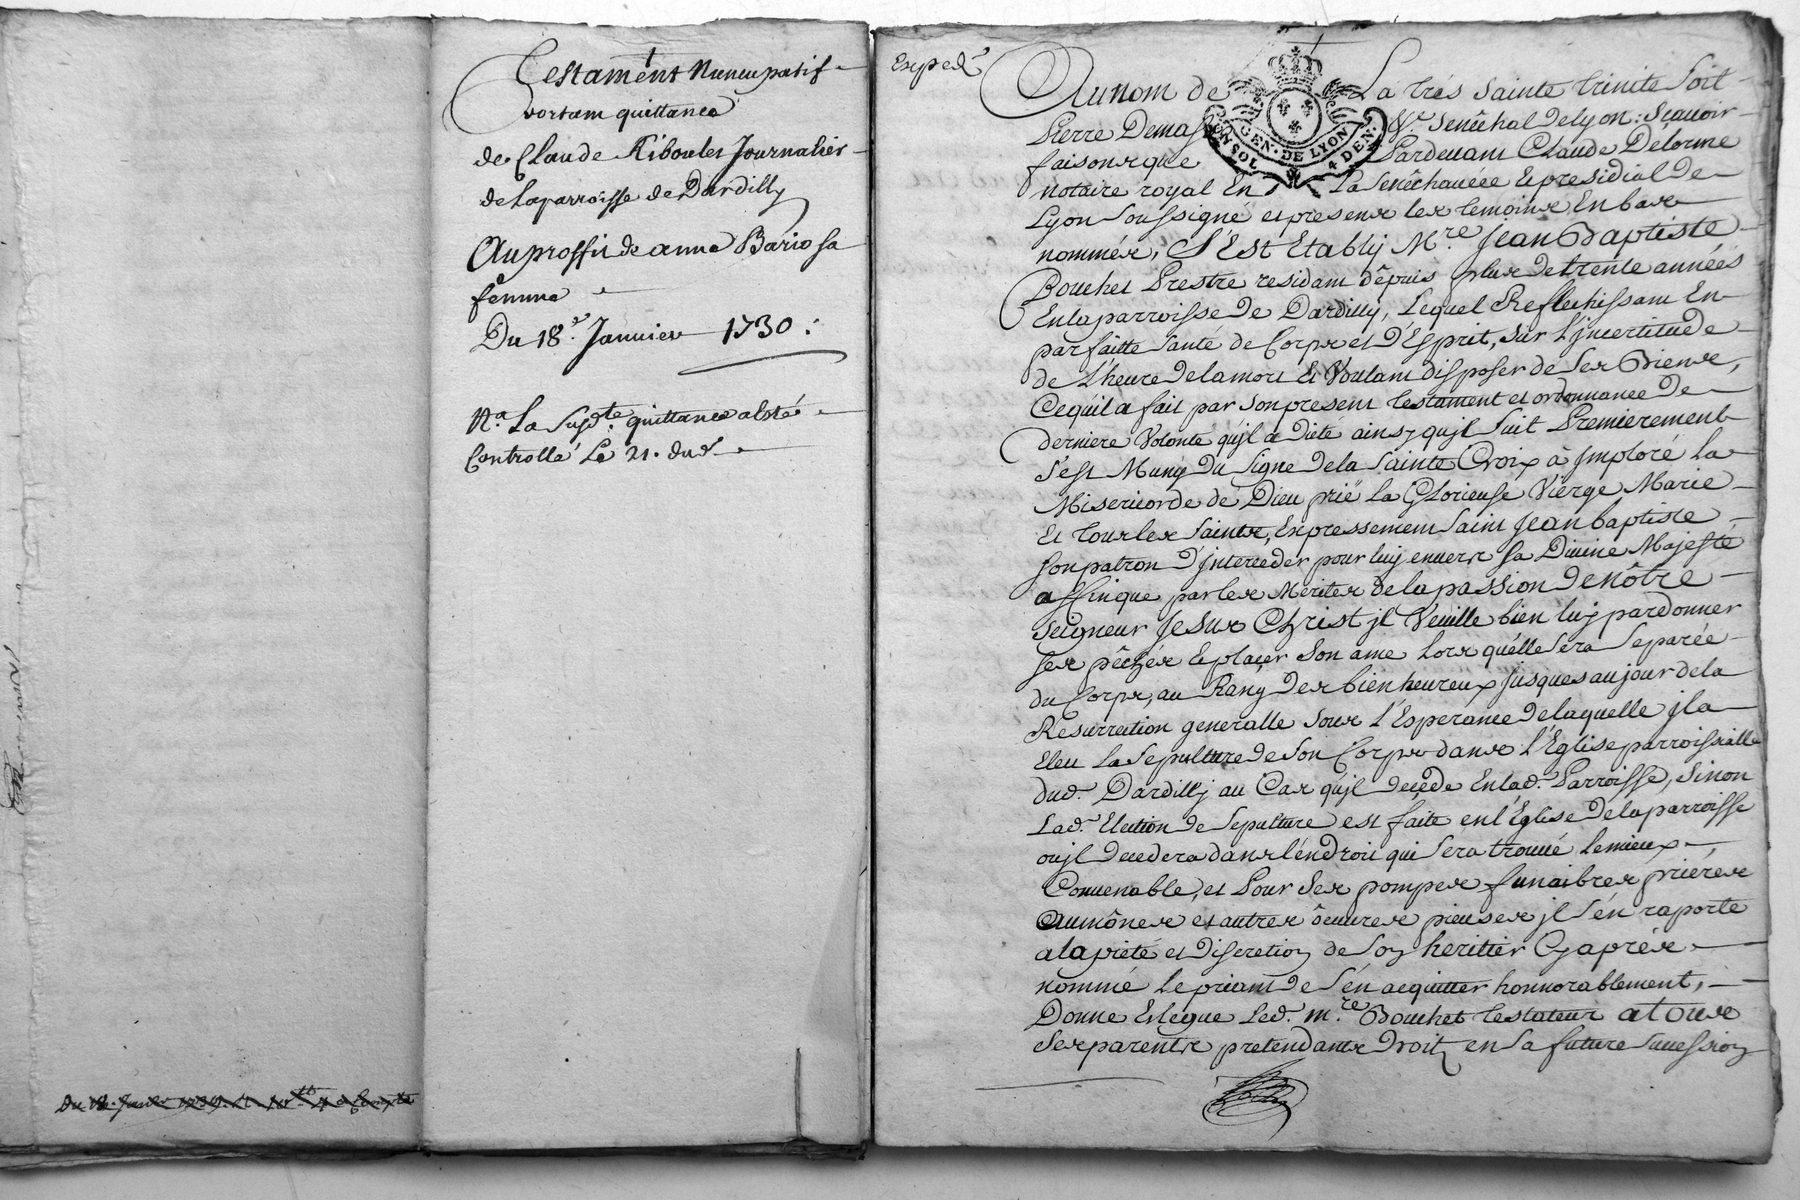 Testament Nuncupatif
portam quittance
de Claude Riboulet Journalier
de Laparroisse de Dardilly
Au proffit de anne Bario sa
femme
Du 18.e Janvier 1730 :
N.a La susd.te quittance a esté
Controllé Le 21. dud.
Exped.é
Au nom de La trés Sainte trinité Soit
Pierre Demas Sr. Senêchal de Lyon : Scauoir
faisons que Pardeuant Claude Delorme
notaire royal En La Senêchaucée et presidial de
Lyon Soussigné et presens les temoins En bas
nommés, S'Est Etably M.re Jean Baptiste
Bouchet Prestre residant dêpuis plus de trente années
En la parroisse de Dardilly, Lequel Reflechissant En
parfaitte Santé de Corps et D'Esprit, Sur L'jncertitude
de L'heure de la mort Et Voulant disposer de Ses Biens,
Ce quil a fait par Son present testament et ordonnance de
derniere Volonté qu'jl a Dicté ainsy qujl Suit Premierement
S'est Muny Du Signe De la Sainte Croix a jmploré La
Misericorde de Dieu prié La Glorieuse Vierge Marie
Et tous les Saints, Expressement Saint Jean baptiste
Son patron D'jnterceder pour luy enuers Sa Diuine Majesté
affin que par les Merites de la passion De nôtre
Seigneur Jesus Christ jl Veuille bien luy pardonner
Ses pêchés Et plaçer Son ame Lors quélle Sera Separée
du Corps, au Rang des bienheureux jusques au jour de la
Resurrection generalle Sous L'Esperance De laquelle jl a
Eleu La Sepulture de Son Corps dans L'Eglise parroissialle
dud. Dardilly au Cas qujl decede En lad. Parroisse, Sinon
Lad. Election de Sepulture est faite en l'Eglise De la parroisse
ou jl decedera dans lendroit qui Sera trouué le mieux
Conuenable, et Pour Ses pompes funaibres priérés
Aumônes et autres ôeuures pieuses jl S'én raporte
a la pieté et Discretion de Son heritier Cy aprés
nommé Le priant de S'én acquitter honnorablement,
Donne Et legue Led. m.re Bouchet testateur a tous
Ses parents pretendants Droit en Sa future Sucession
GEN · DE LYON
4 DEN.